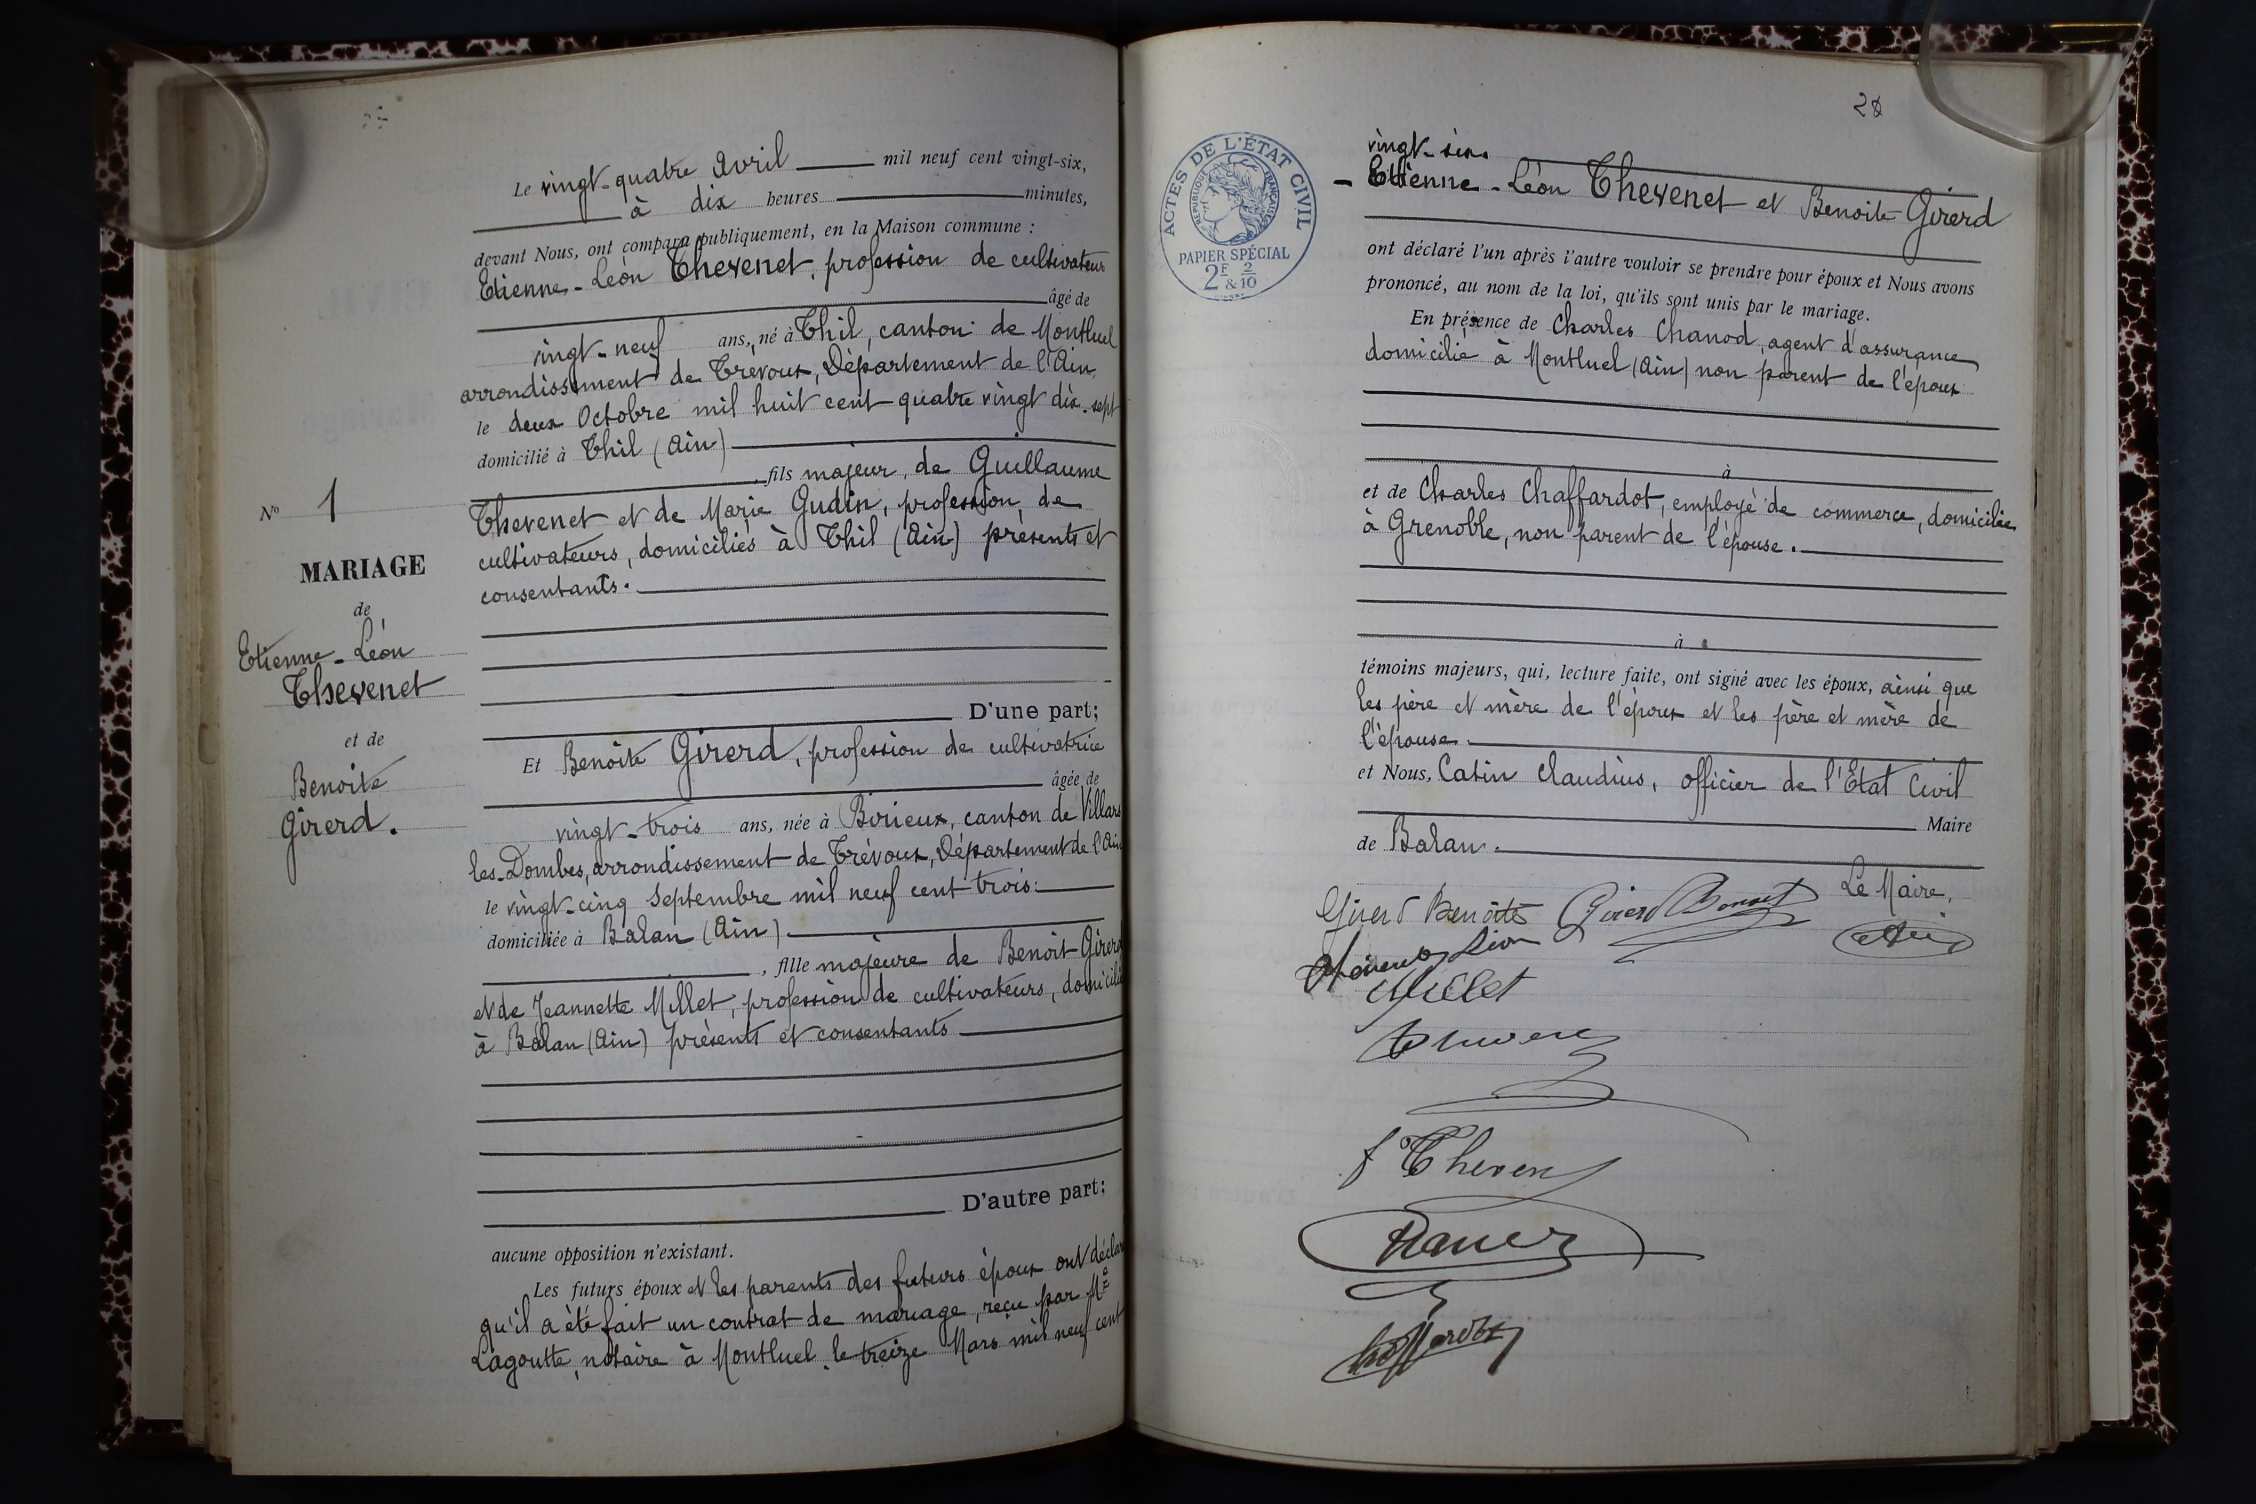 Le vingt-quatre Avril mil neuf cent vingt-six,
à dix heures minutes,
devant Nous, ont comparu publiquement, en la Maison commune :
Etienne-Léon Thevenet, profession de cultivateur
âgé de
vingt-neuf ans, né à Thil, canton de Montluel
arrondissement de Trévoux, Département de l'Ain
le deux Octobre mil huit cent quatre vingt dix-sept
domicilié à Thil (Ain)
, fils majeur, de Guillaume
Thevenet et de Marie Gudin, profession de
cultivateurs, domiciliés à Thil (Ain) présents et
consentants.
N° 1
MARIAGE
de
Etienne-Léon
Thevenet
et de
Benoite
Girerd.
D'une part;
Et Benoite Girerd, profession de cultivatrice
âgée de
vingt-trois ans, née à Birieux, canton de Villars
les-Dombes, arrondissement de Trévoux, Département de l'Ain
le vingt-cinq Septembre mil neuf cent trois.
domiciliée à Balan (Ain)
, fille majeure de Benoit Girerd
et de Jeannette Millet, profession de cultivateurs, domiciliés
à Balan (Ain) présents et consentants
D'autre part:
aucune opposition n'existant.
Les futurs époux et les parents des futurs époux ont déclaré
qu'il a été fait un contrat de mariage, reçu par Me
Lagoutte, notaire à Montluel, le treize Mars mil neuf cent
vingt-six.
Etienne-Léon Thevenet et Benoite Girerd
ont déclaré l'un après l'autre vouloir se prendre pour époux et Nous avons
prononcé, au nom de la loi, qu'ils sont unis par le mariage.
En présence de Charles Chanod, agent d'assurance
domicilié à Montluel (Ain) non parent de l'époux
à
et de Charles Chaffardot, employé de commerce, domicilié
à Grenoble, non parent de l'épouse.
à
témoins majeurs, qui, lecture faite, ont signé avec les époux, ainsi que
les père et mère de l'époux et les père et mère de
l'épouse.
et Nous, Catin Claudius, Officier de l'Etat Civil
Maire
de Balan.
Le Maire,
Girerd Benoite Girerd
Léon
Millet
ACTES DE L'ÉTAT CIVIL
RÉPUBLIQUE FRANÇAISE
PAPIER SPÉCIAL
2F & 2/10